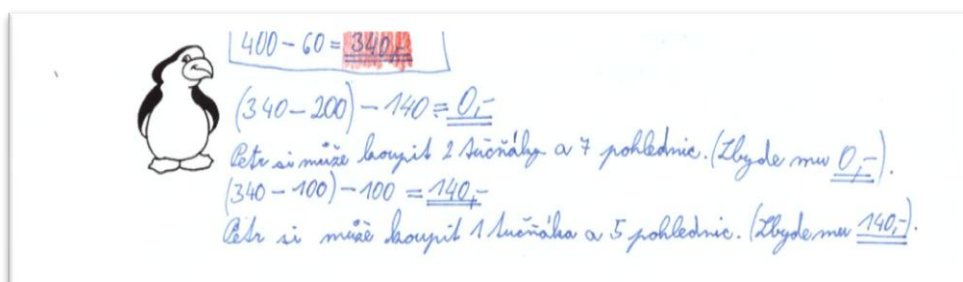 400 - 60 = 340,-
(340 - 200) - 140 = 0,-
Petr si může koupit 2 tučňáky a 7 pohlednic. (Zbyde mu 0,-).
(340 - 100) - 100 = 140,-
Petr si může koupit 1 tučňáka a 5 pohlednic. (Zbyde mu 140,-).